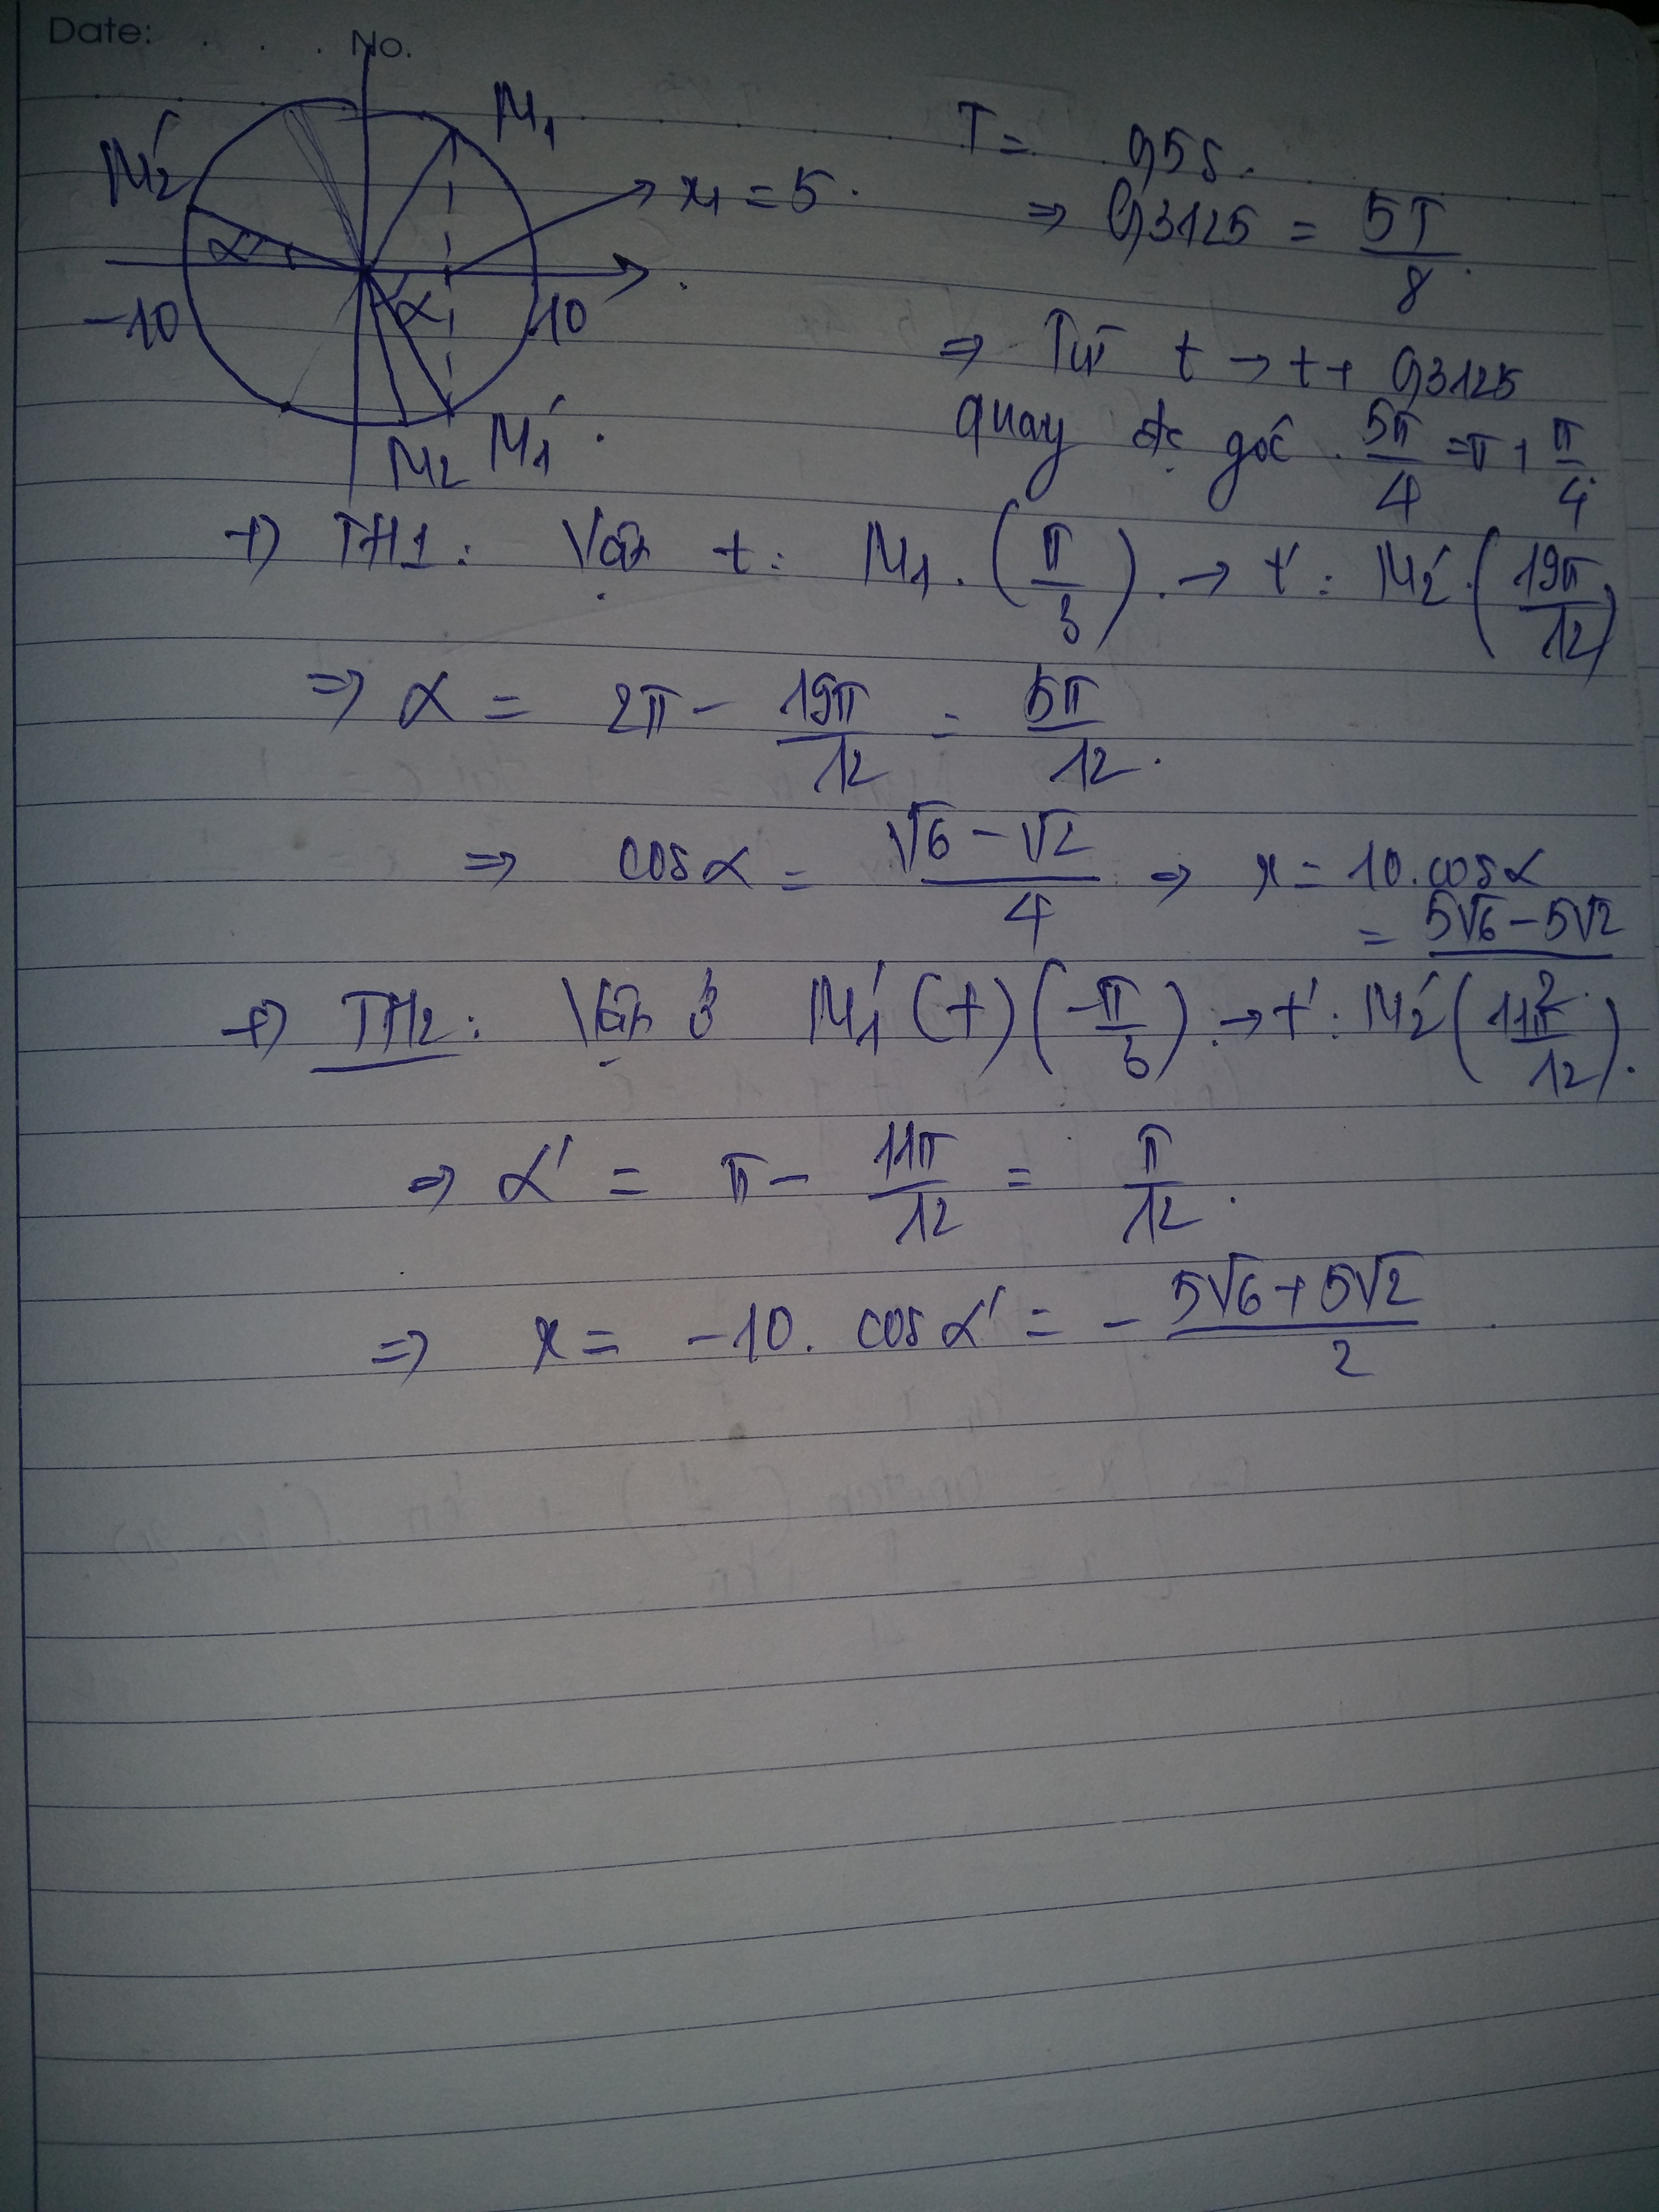 Date: . . . No.
M₁
M₂'
x₁ = 5
α
α
-10
10
M₂ M₁'
T = 0,5s.
=> 0,3125 = 5T/8
=> Từ t -> t + 0,3125
quay đc góc 5π/4 = π + π/4
+) TH1: Vật t: M₁ (π/3) -> t': M₂' (19π/12)
=> α = 2π - 19π/12 = 5π/12.
=> cosα = (√6 - √2)/4 => x = 10.cosα
= (5√6 - 5√2)/2
+) TH2: Vật ở M₁' (t) (-π/3) -> t': M₂' (11π/12).
=> α' = π - 11π/12 = π/12.
=> x = -10. cosα' = - (5√6 + 5√2)/2